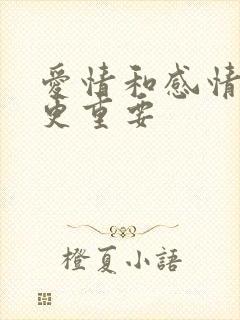 愛情和感情
更重要
橙夏小語